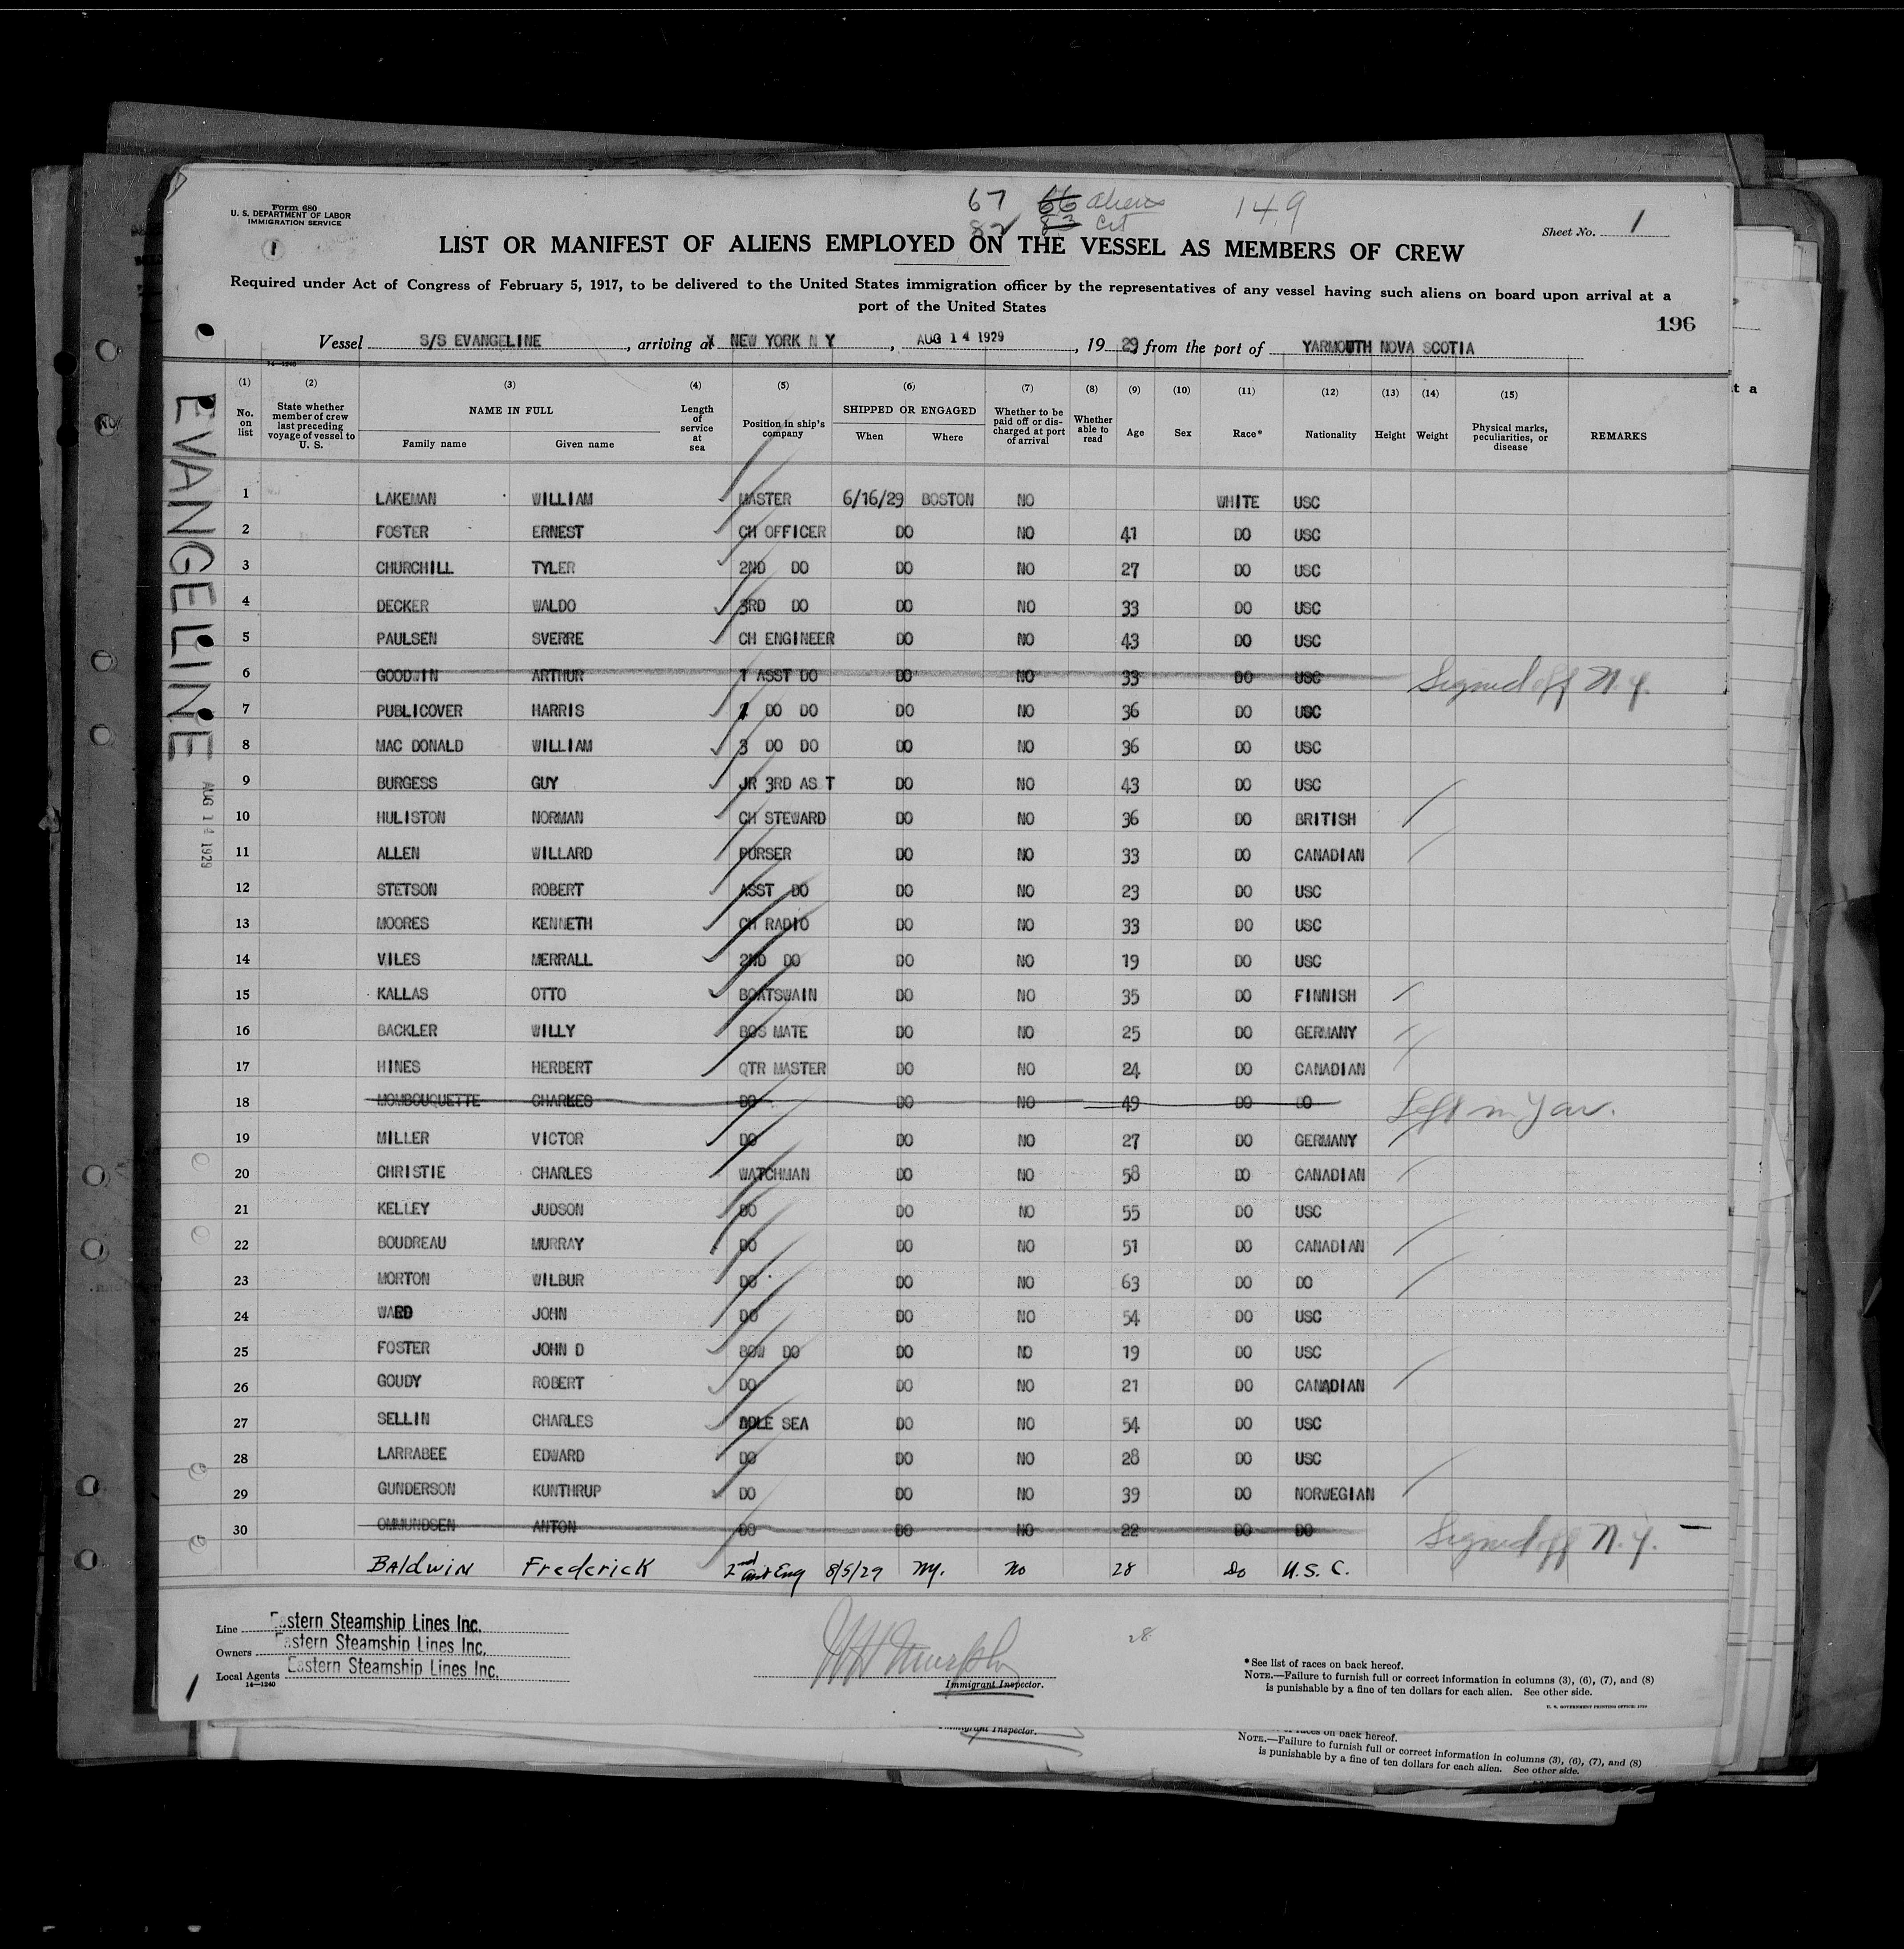 Form 680
U. S. DEPARTMENT OF LABOR
IMMIGRATION SERVICE
1
67 66 aliens 149
82 83 Cit
Sheet No. 1
LIST OR MANIFEST OF ALIENS EMPLOYED ON THE VESSEL AS MEMBERS OF CREW
Required under Act of Congress of February 5, 1917, to be delivered to the United States immigration officer by the representatives of any vessel having such aliens on board upon arrival at a
port of the United States
196
Vessel S/S EVANGELINE, arriving at NEW YORK N Y, AUG 14 1929, 19 29, from the port of YARMOUTH NOVA SCOTIA
14—1240
(1) (2) (3) (4) (5) (6) (7) (8) (9) (10) (11) (12) (13) (14) (15)
No. on list
State whether member of crew last preceding voyage of vessel to U. S.
NAME IN FULL
Family name Given name
Length of service at sea
Position in ship's company
SHIPPED OR ENGAGED
When Where
Whether to be paid off or discharged at port of arrival
Whether able to read
Age Sex Race* Nationality Height Weight
Physical marks, peculiarities, or disease
REMARKS
EVANGELINE
AUG 14 1929
1 LAKEMAN WILLIAM MASTER 6/16/29 BOSTON NO WHITE USC
2 FOSTER ERNEST CH OFFICER DO NO 41 DO USC
3 CHURCHILL TYLER 2ND DO DO NO 27 DO USC
4 DECKER WALDO 3RD DO DO NO 33 DO USC
5 PAULSEN SVERRE CH ENGINEER DO NO 43 DO USC
6 GOODWIN ARTHUR 1 ASST DO DO NO 33 DO USC Signed off N.Y.
7 PUBLICOVER HARRIS 1 DO DO DO NO 36 DO USC
8 MAC DONALD WILLIAM 3 DO DO DO NO 36 DO USC
9 BURGESS GUY JR 3RD AS T DO NO 43 DO USC
10 HULISTON NORMAN CH STEWARD DO NO 36 DO BRITISH
11 ALLEN WILLARD PURSER DO NO 33 DO CANADIAN
12 STETSON ROBERT ASST DO DO NO 23 DO USC
13 MOORES KENNETH CH RADIO DO NO 33 DO USC
14 VILES MERRALL 2ND DO DO NO 19 DO USC
15 KALLAS OTTO BOATSWAIN DO NO 35 DO FINNISH
16 BACKLER WILLY BOS MATE DO NO 25 DO GERMANY
17 HINES HERBERT QTR MASTER DO NO 24 DO CANADIAN
18 MOMBOUQUETTE CHARKES DO DO NO 49 DO DO Left in Yar.
19 MILLER VICTOR DO DO NO 27 DO GERMANY
20 CHRISTIE CHARLES WATCHMAN DO NO 58 DO CANADIAN
21 KELLEY JUDSON DO DO NO 55 DO USC
22 BOUDREAU MURRAY DO DO NO 51 DO CANADIAN
23 MORTON WILBUR DO DO NO 63 DO DO
24 WARD JOHN DO DO NO 54 DO USC
25 FOSTER JOHN D BOW DO DO NO 19 DO USC
26 GOUDY ROBERT DO DO NO 21 DO CANADIAN
27 SELLIN CHARLES ABLE SEA DO NO 54 DO USC
28 LARRABEE EDWARD DO DO NO 28 DO USC
29 GUNDERSON KUNTHRUP DO DO NO 39 DO NORWEGIAN
30 OMMUNDSEN ANTON DO DO NO 22 DO DO Signed off N.Y.
BAldwiN Frederick 2nd asst Eng 8/5/29 Ny. No 28 Do U.S.C.
Line Eastern Steamship Lines Inc.
Owners Eastern Steamship Lines Inc.
Local Agents Eastern Steamship Lines Inc.
14—1240
1
28
Immigrant Inspector.
*See list of races on back hereof.
NOTE.—Failure to furnish full or correct information in columns (3), (6), (7), and (8)
is punishable by a fine of ten dollars for each alien. See other side.
U. S. GOVERNMENT PRINTING OFFICE:
Immigrant Inspector.
of races on back hereof.
NOTE.—Failure to furnish full or correct information in columns (3), (6), (7), and (8)
is punishable by a fine of ten dollars for each alien. See other side.